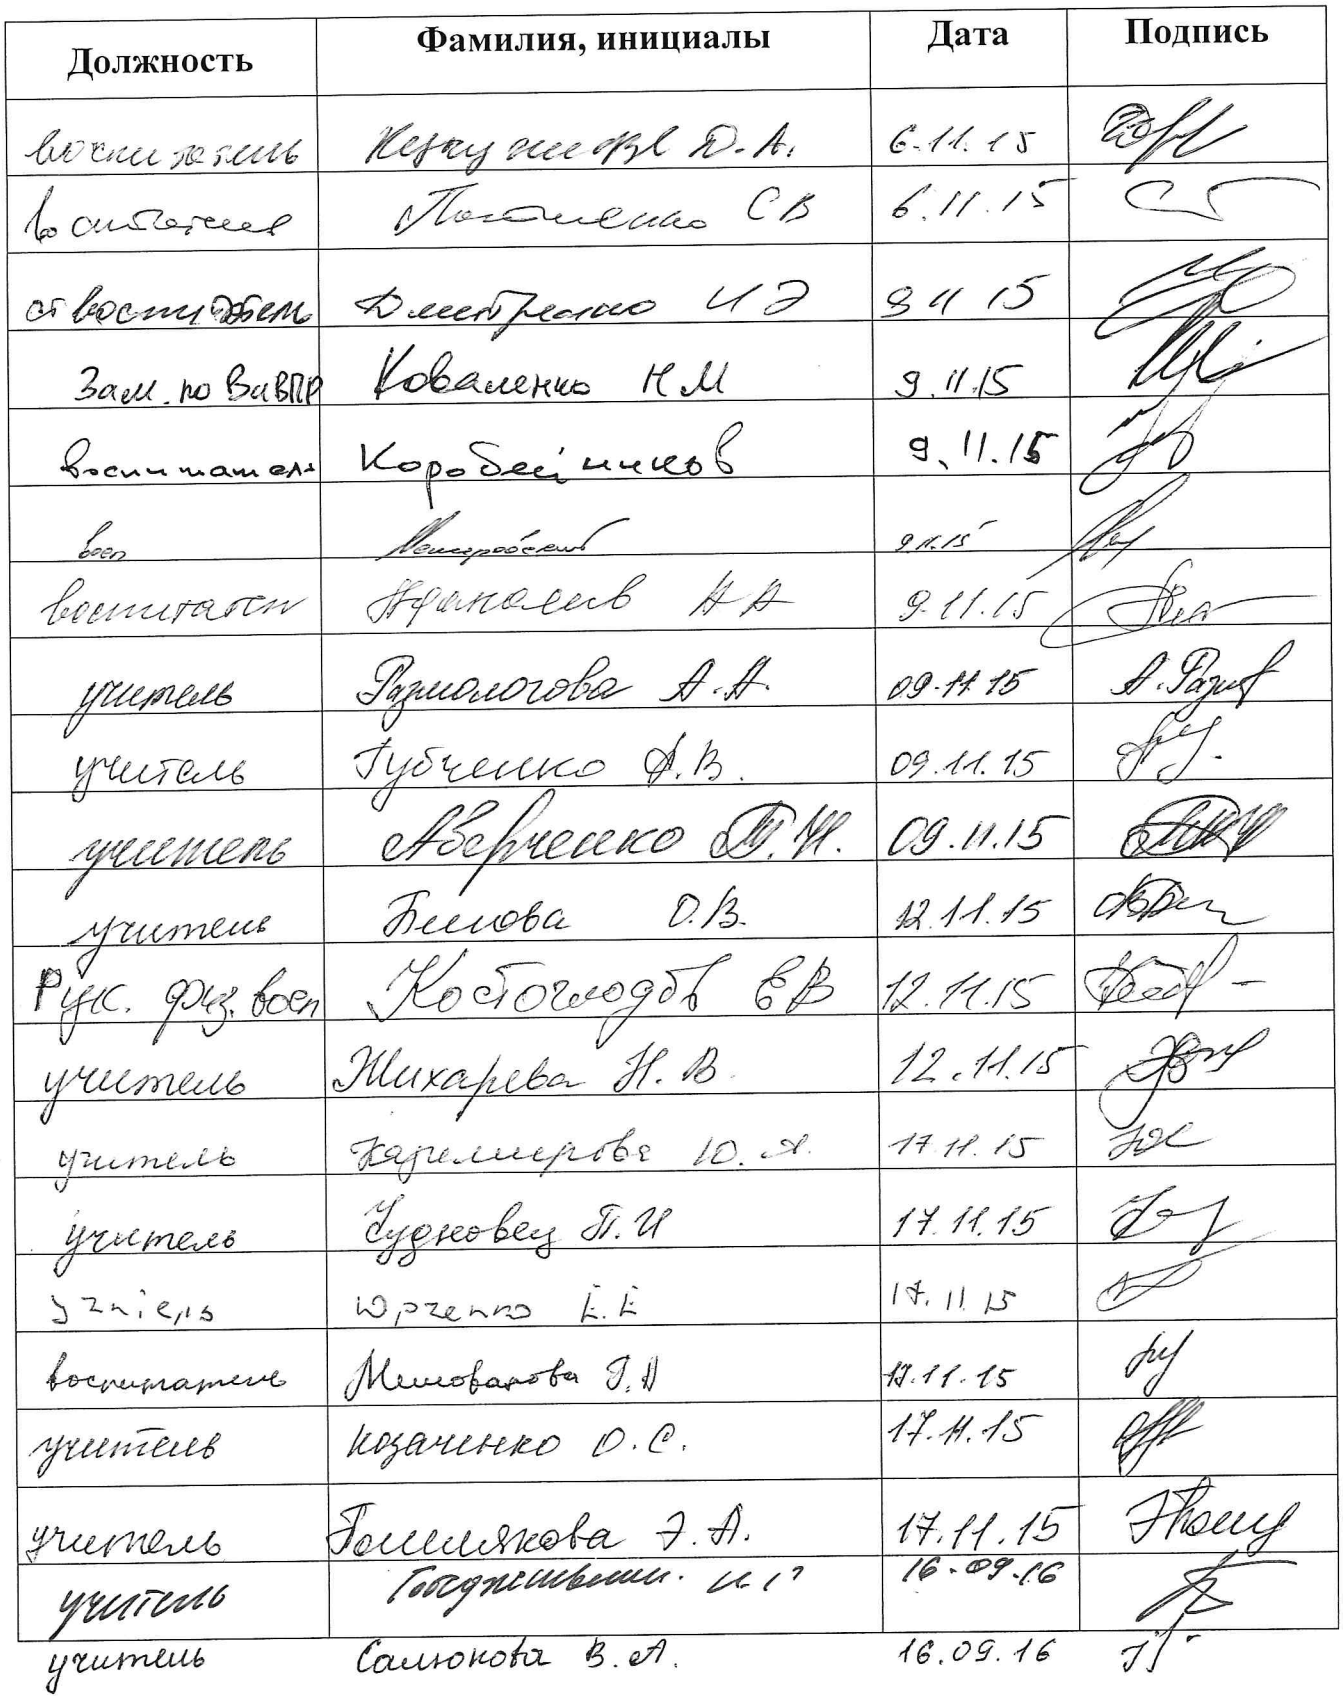 Должность Фамилия, инициалы Дата Подпись
воспитатель Д.А. 6.11.15
воспитатель СВ 6.11.15
ст воспитатель Дмитренко И Э 9 11 15
Зам. по ВиВПР Коваленко Н М 9.11.15
воспитатель Коробейников 9.11.15
восп 9.11.15
воспитатель А А 9.11.15
учитель Размологова А.А. 09.11.15 А.Разм
учитель Губченко А.В. 09.11.15
учитель Аверченко Т.Н. 09.11.15
учитель Белова О.В. 12.11.15
Рук. физ. восп Костоглодов ЕВ 12.11.15
учитель Жихарева Н.В. 12.11.15
учитель Ю.А. 17.11.15
учитель Чудновец П.И 17.11.15
учитель Юрченко Е.Е 17.11.15
воспитатель Милованова Г.А 17.11.15
учитель Козаченко О.С. 17.11.15
учитель Э.А. 17.11.15
учитель 16.09.16
учитель Салюкова В.А. 16.09.16